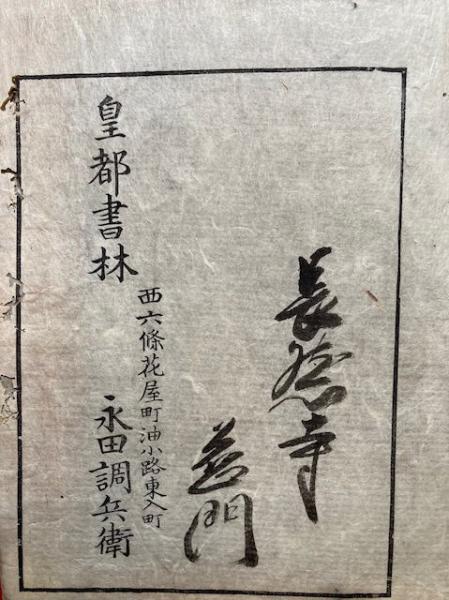 長念寺
門
皇都書林
西六條花屋町油小路東入町
永田調兵衛